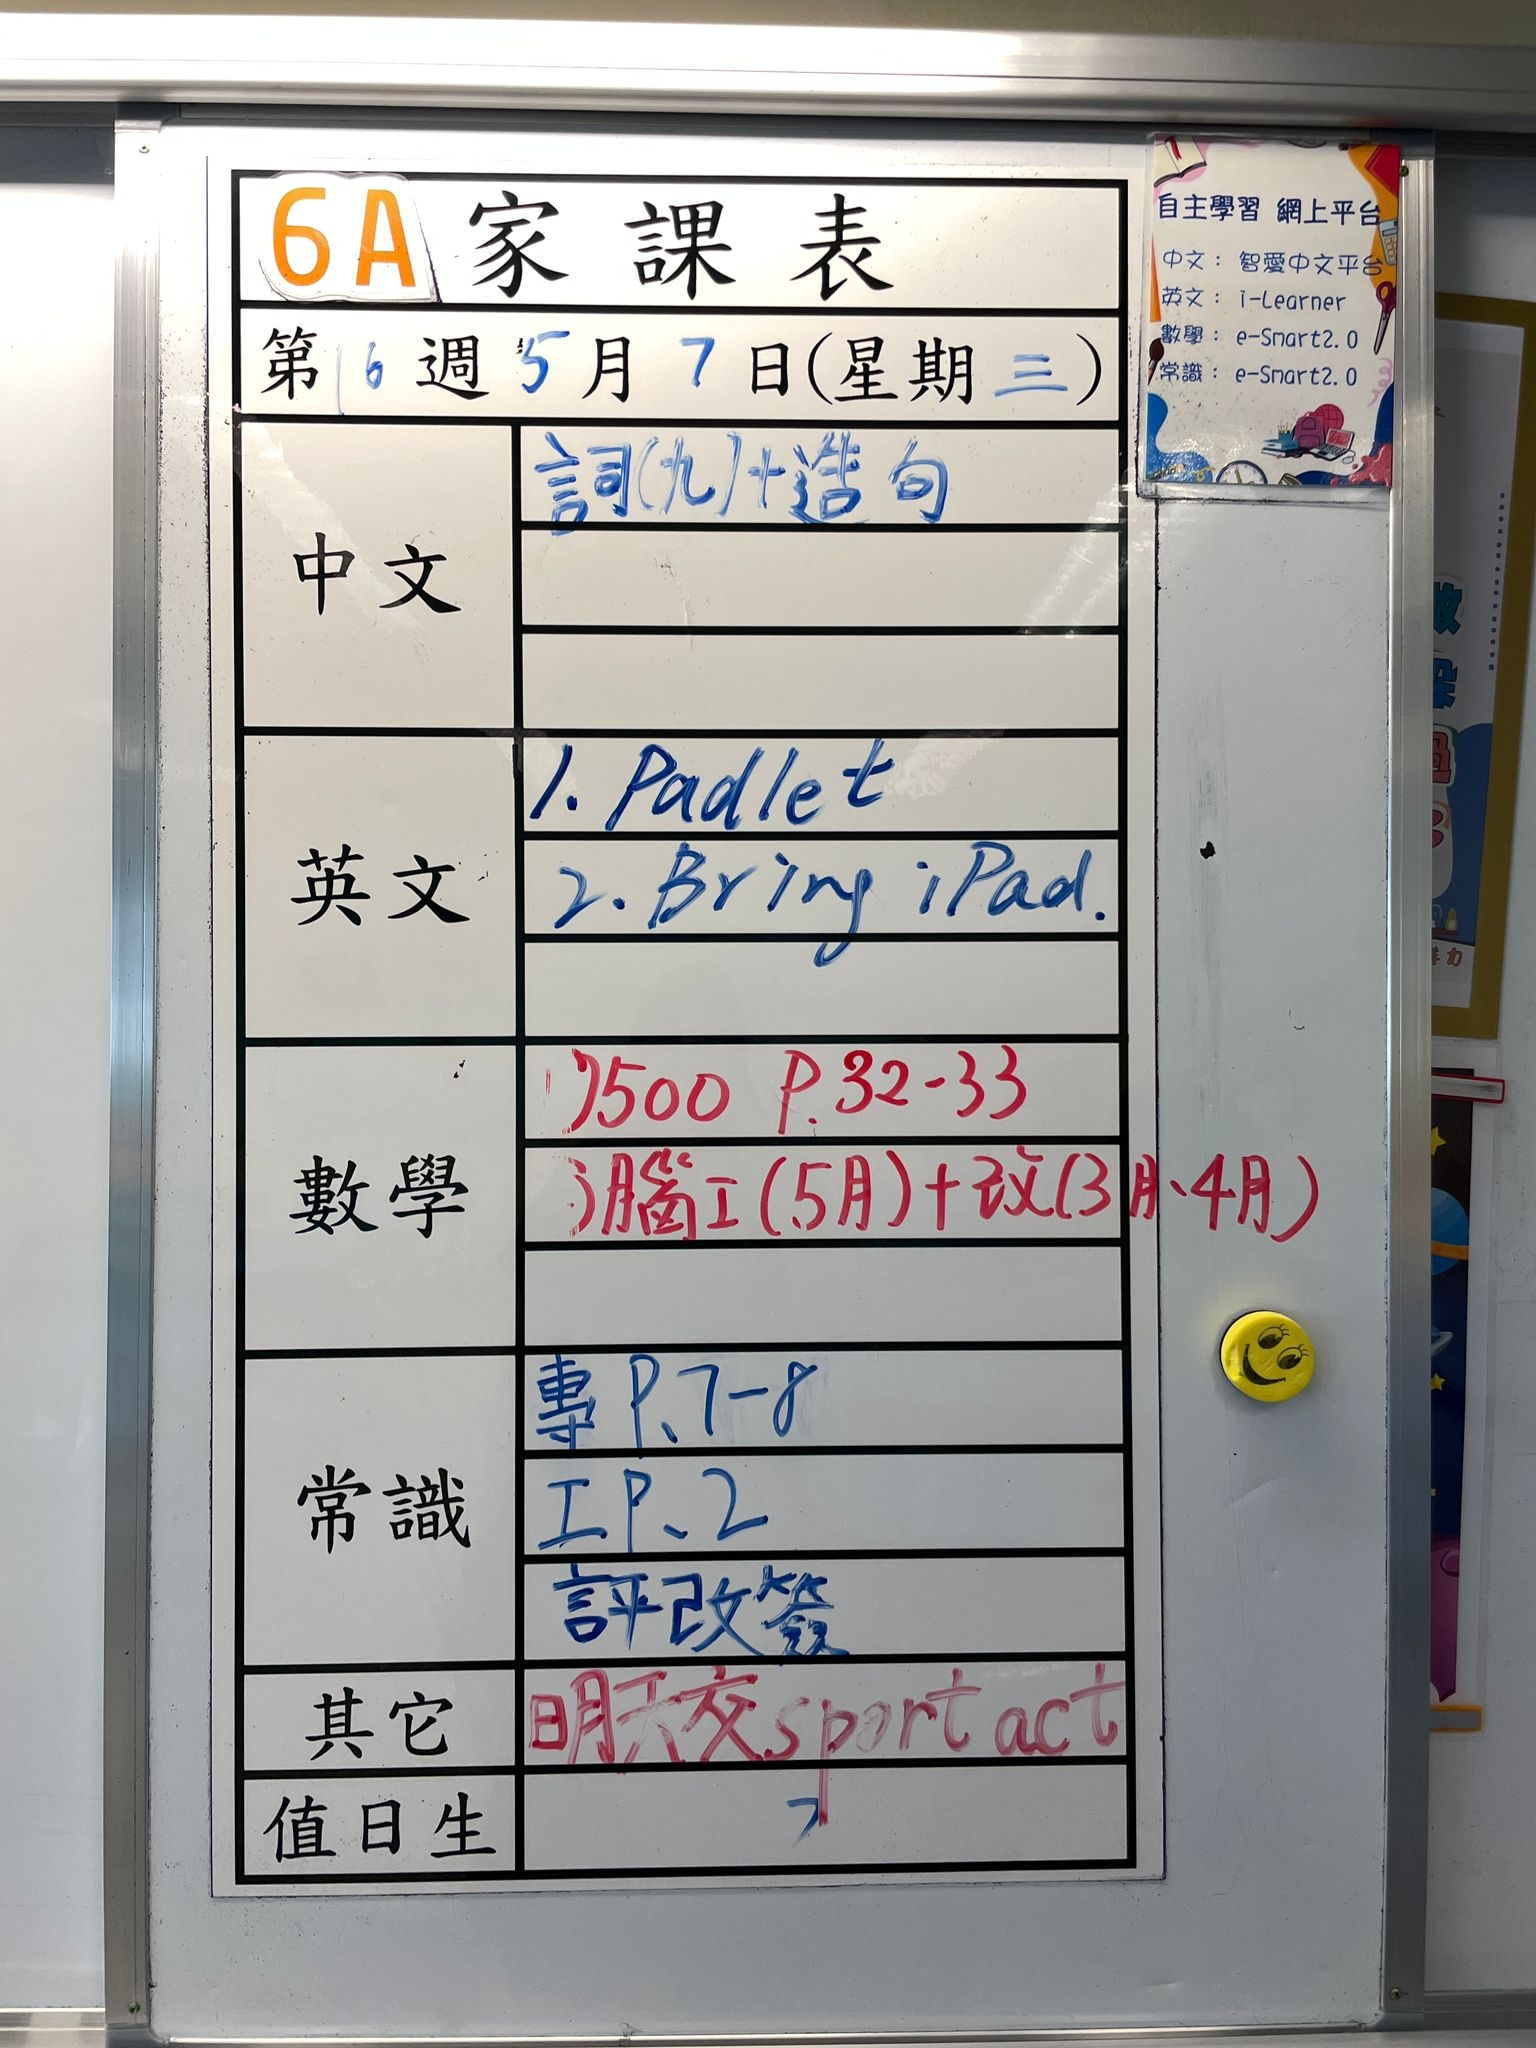 6A 家課表
第 16 週 5 月 7 日(星期 三)
中文
詞(九)+造句
英文
1. Padlet
2. Bring iPad.
數學
7500 P.32-33
腦工(5月)+改(3月、4月)
常識
專 P.7-8
工 P.2
評改簽
其它
明天交 sport act
值日生
7
自主學習 網上平台
中文： 智愛中文平台
英文： i-Learner
數學： e-Smart2.0
常識： e-Smart2.0